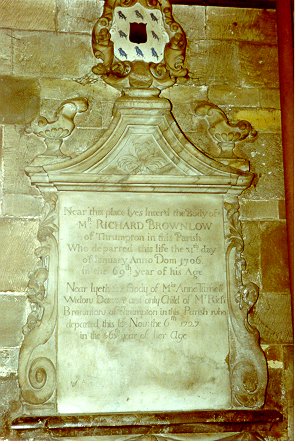 Near this place lyes Interr'd the Body of
Mr. RICHARD BROWNLOW
of Thrumpton in this Parish
Who departed this life the day
of January Anno Dom 1706
in the 69th year of his Age
Near lyeth the Body of Mrs. Anne
Widow and only Child of Mr. Richd
Brownlow of Thrumpton in this Parish who
departed this life Novr. the 6th 1727
in the year of her Age